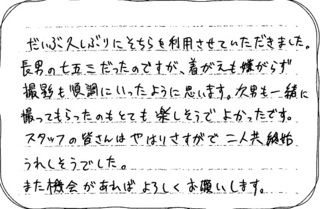 だいぶ久しぶりにそちらを利用させていただきました。
長男の七五三だったのですが、着がえも嫌がらず
撮影も順調にいったように思います。次男も一緒に
撮ってもらったのもとても楽しそうでよかったです。
スタッフの皆さんはやはりさすがで二人共終始
うれしそうでした。
また機会があればよろしくお願いします。